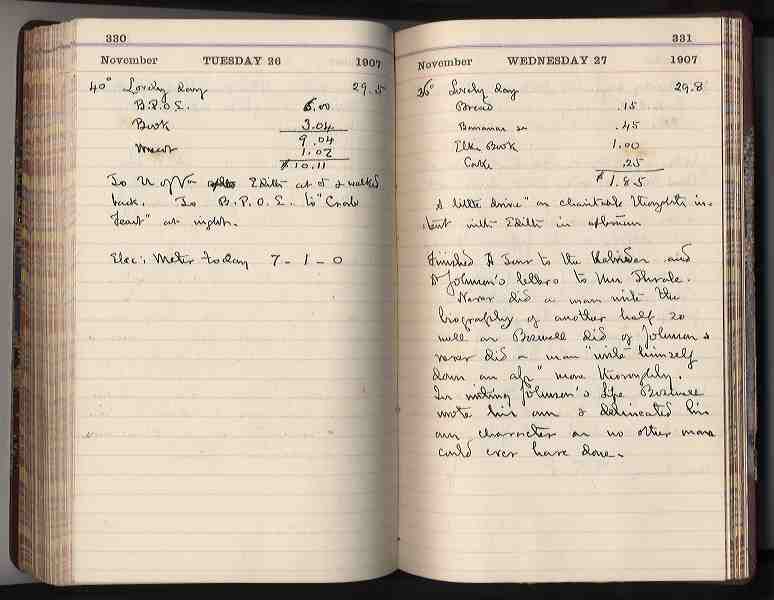 330
November TUESDAY 26 1907
40° Lovely day 29.5
B.P.O.E. 6.00
Book 3.04
9.04
1.07
$10.11
To U of Va Edith at 5 & walked
back. To B.P.O.E. to "Crab
feast" at night.
Elec: Meter today 7-1-0
331
November WEDNESDAY 27 1907
36° Lovely day 29.8
Bread .15
Bananas .45
Elks Book 1.00
Cake .25
$1.85
A little drive" on charitable thoughts in-
tent with Edith in afternoon
Finished A Tour to the Hebrides and
Dr Johnson's letters to Mrs Thrale.
Never did a man write the
biography of another half so
well as Boswell did of Johnson &
never did a man "write himself
down an ass" more thoroughly.
In writing Johnson's life Boswell
wrote his own & delineated his
own character as no other man
could ever have done.